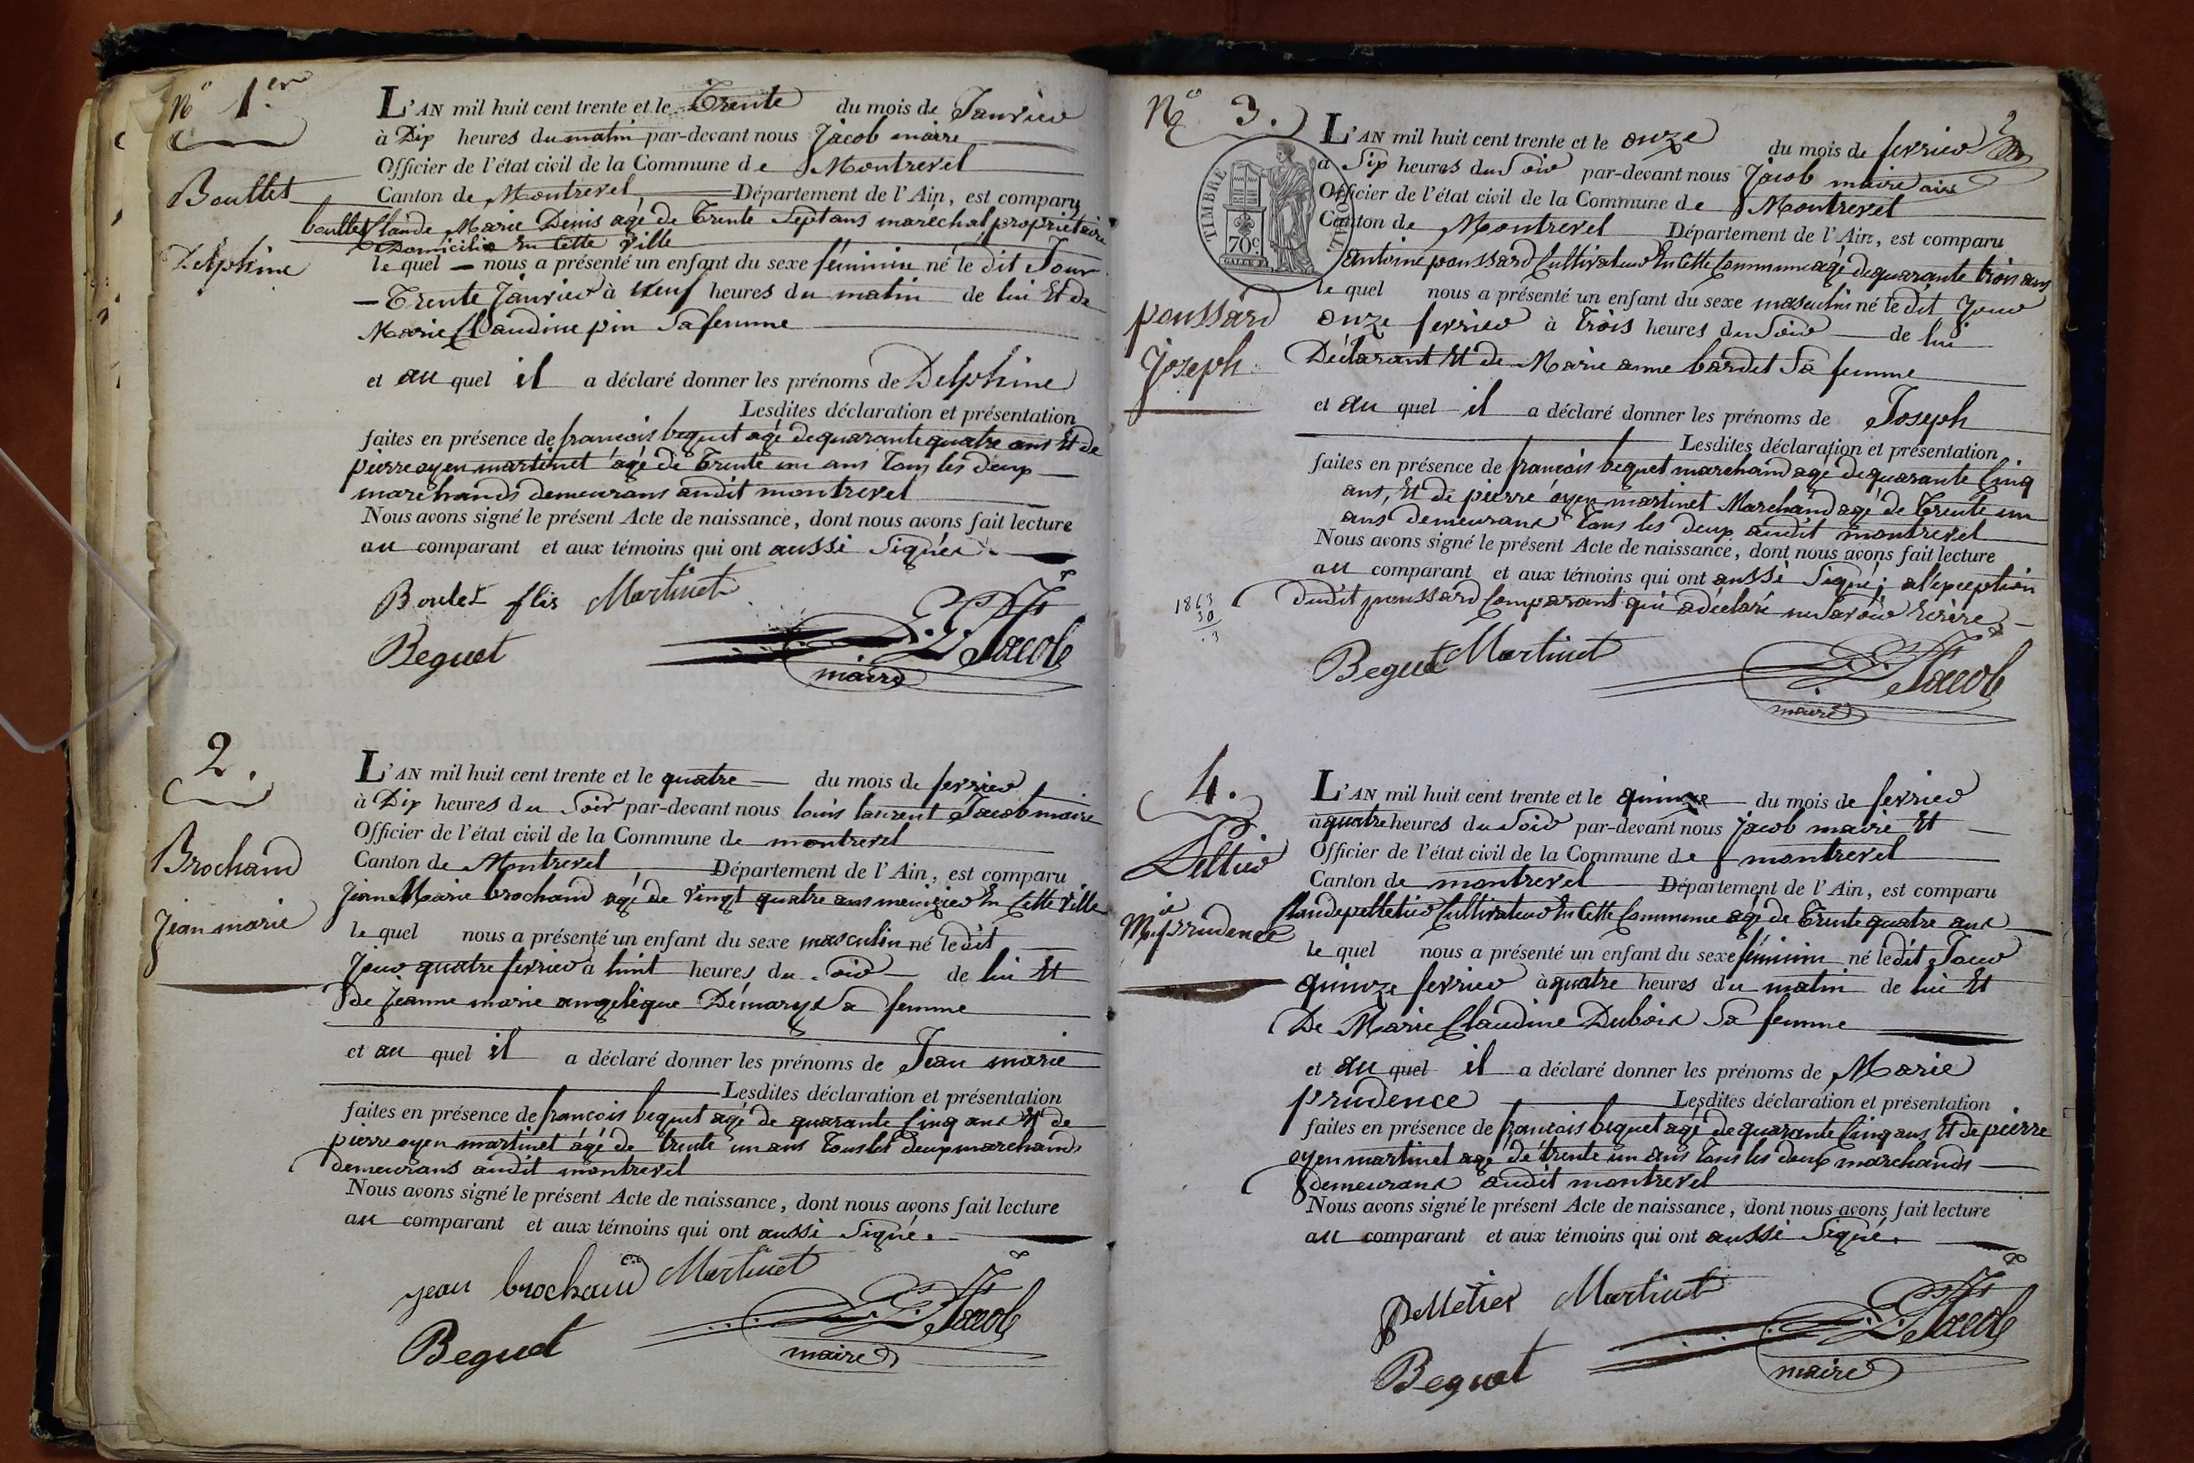 N° 1.er
Boullet
Delphine
L'AN mil huit cent trente et le Trente du mois de Janvier
à Dix heures du matin par-devant nous Jacob maire
Officier de l'état civil de la Commune de Montrevel
Canton de Montrevel Département de l'Ain, est comparu
boullet Claude Marie Denis agé de Trente Sept ans marechal proprietaire
Domicilié En Cette Ville
le quel nous a présenté un enfant du sexe féminin né le dit Jour
Trente Janvier à neuf heures du matin de lui Et de
Marie Claudine pin Sa femme
et au quel il a déclaré donner les prénoms de Delphine
Lesdites déclaration et présentation
faites en présence de francois bequet agé de quarante quatre ans Et de
pierre oyen martinet agé de Trente un ans Tous les deux
marchands demeurans audit montrevel
Nous avons signé le présent Acte de naissance, dont nous avons fait lecture
au comparant et aux témoins qui ont aussi Signés.
Boulet fils Martinet
Bequet Jacob
maire
2.
Brochand
Jean marie
L'AN mil huit cent trente et le quatre du mois de fevrier
à Dix heures du Soir par-devant nous louis laurent Jacob maire
Officier de l'état civil de la Commune de montrevel
Canton de Montrevel Département de l'Ain, est comparu
Jean Marie brochand agé de Vingt quatre ans menizier En Cette Ville
le quel nous a présenté un enfant du sexe masculin né le dit
Jour quatre fevrier à huit heures du Soir de lui Et
de Jeanne marie angelique Démarys Sa femme
et au quel il a déclaré donner les prénoms de Jean marie
Lesdites déclaration et présentation
faites en présence de francois bequet agé de quarante Cinq ans Et de
pierre oyen martinet agé de trente un ans Tous les deux marchands
demeurans audit montrevel
Nous avons signé le présent Acte de naissance, dont nous avons fait lecture
au comparant et aux témoins qui ont aussi Signé.
jean brochand Martinet
Bequet Jacob
maire
N° 3.
2
TIMBRE ROYAL
70c
poussard
Joseph
L'AN mil huit cent trente et le onze du mois de fevrier
à Six heures du Soir par-devant nous Jacob maire
Officier de l'état civil de la Commune de Montrevel
Canton de Montrevel Département de l'Ain, est comparu
Antoine poussard Cultivateur En Cette Commune agé de quarante trois ans
le quel nous a présenté un enfant du sexe masculin né le dit Jour
onze fevrier à Trois heures du Soir de lui
Déclarant Et de Marie anne bardet Sa femme
et au quel il a déclaré donner les prénoms de Joseph
Lesdites déclaration et présentation
faites en présence de francois bequet marchand agé de quarante Cinq
ans, Et de pierre oyen martinet Marchand agé de Trente un
ans demeurans Tous les deux audit montrevel
Nous avons signé le présent Acte de naissance, dont nous avons fait lecture
au comparant et aux témoins qui ont aussi Signé; a l'exception
dudit poussard Comparant qui a déclaré ne Savoir Ecrire
1863
30
Bequet Martinet
Jacob
maire
4.
Pelletier
M.ie prudence
L'AN mil huit cent trente et le quinze du mois de fevrier
à quatre heures du Soir par-devant nous Jacob maire Et
Officier de l'état civil de la Commune de montrevel
Canton de montrevel Département de l'Ain, est comparu
Claude pelletier Cultivateur En Cette Commune agé de Trente quatre ans
le quel nous a présenté un enfant du sexe féminin né le dit Jour
quinze fevrier à quatre heures du matin de lui Et
De Marie Claudine Dubois Sa femme
et au quel il a déclaré donner les prénoms de Marie
prudence Lesdites déclaration et présentation
faites en présence de francois bequet agé de quarante Cinq ans Et de pierre
oyen martinet agé de trente un ans Tous les deux marchands
demeurans audit montrevel
Nous avons signé le présent Acte de naissance, dont nous avons fait lecture
au comparant et aux témoins qui ont aussi Signé.
pelletier Martinet
Bequet Jacob
maire